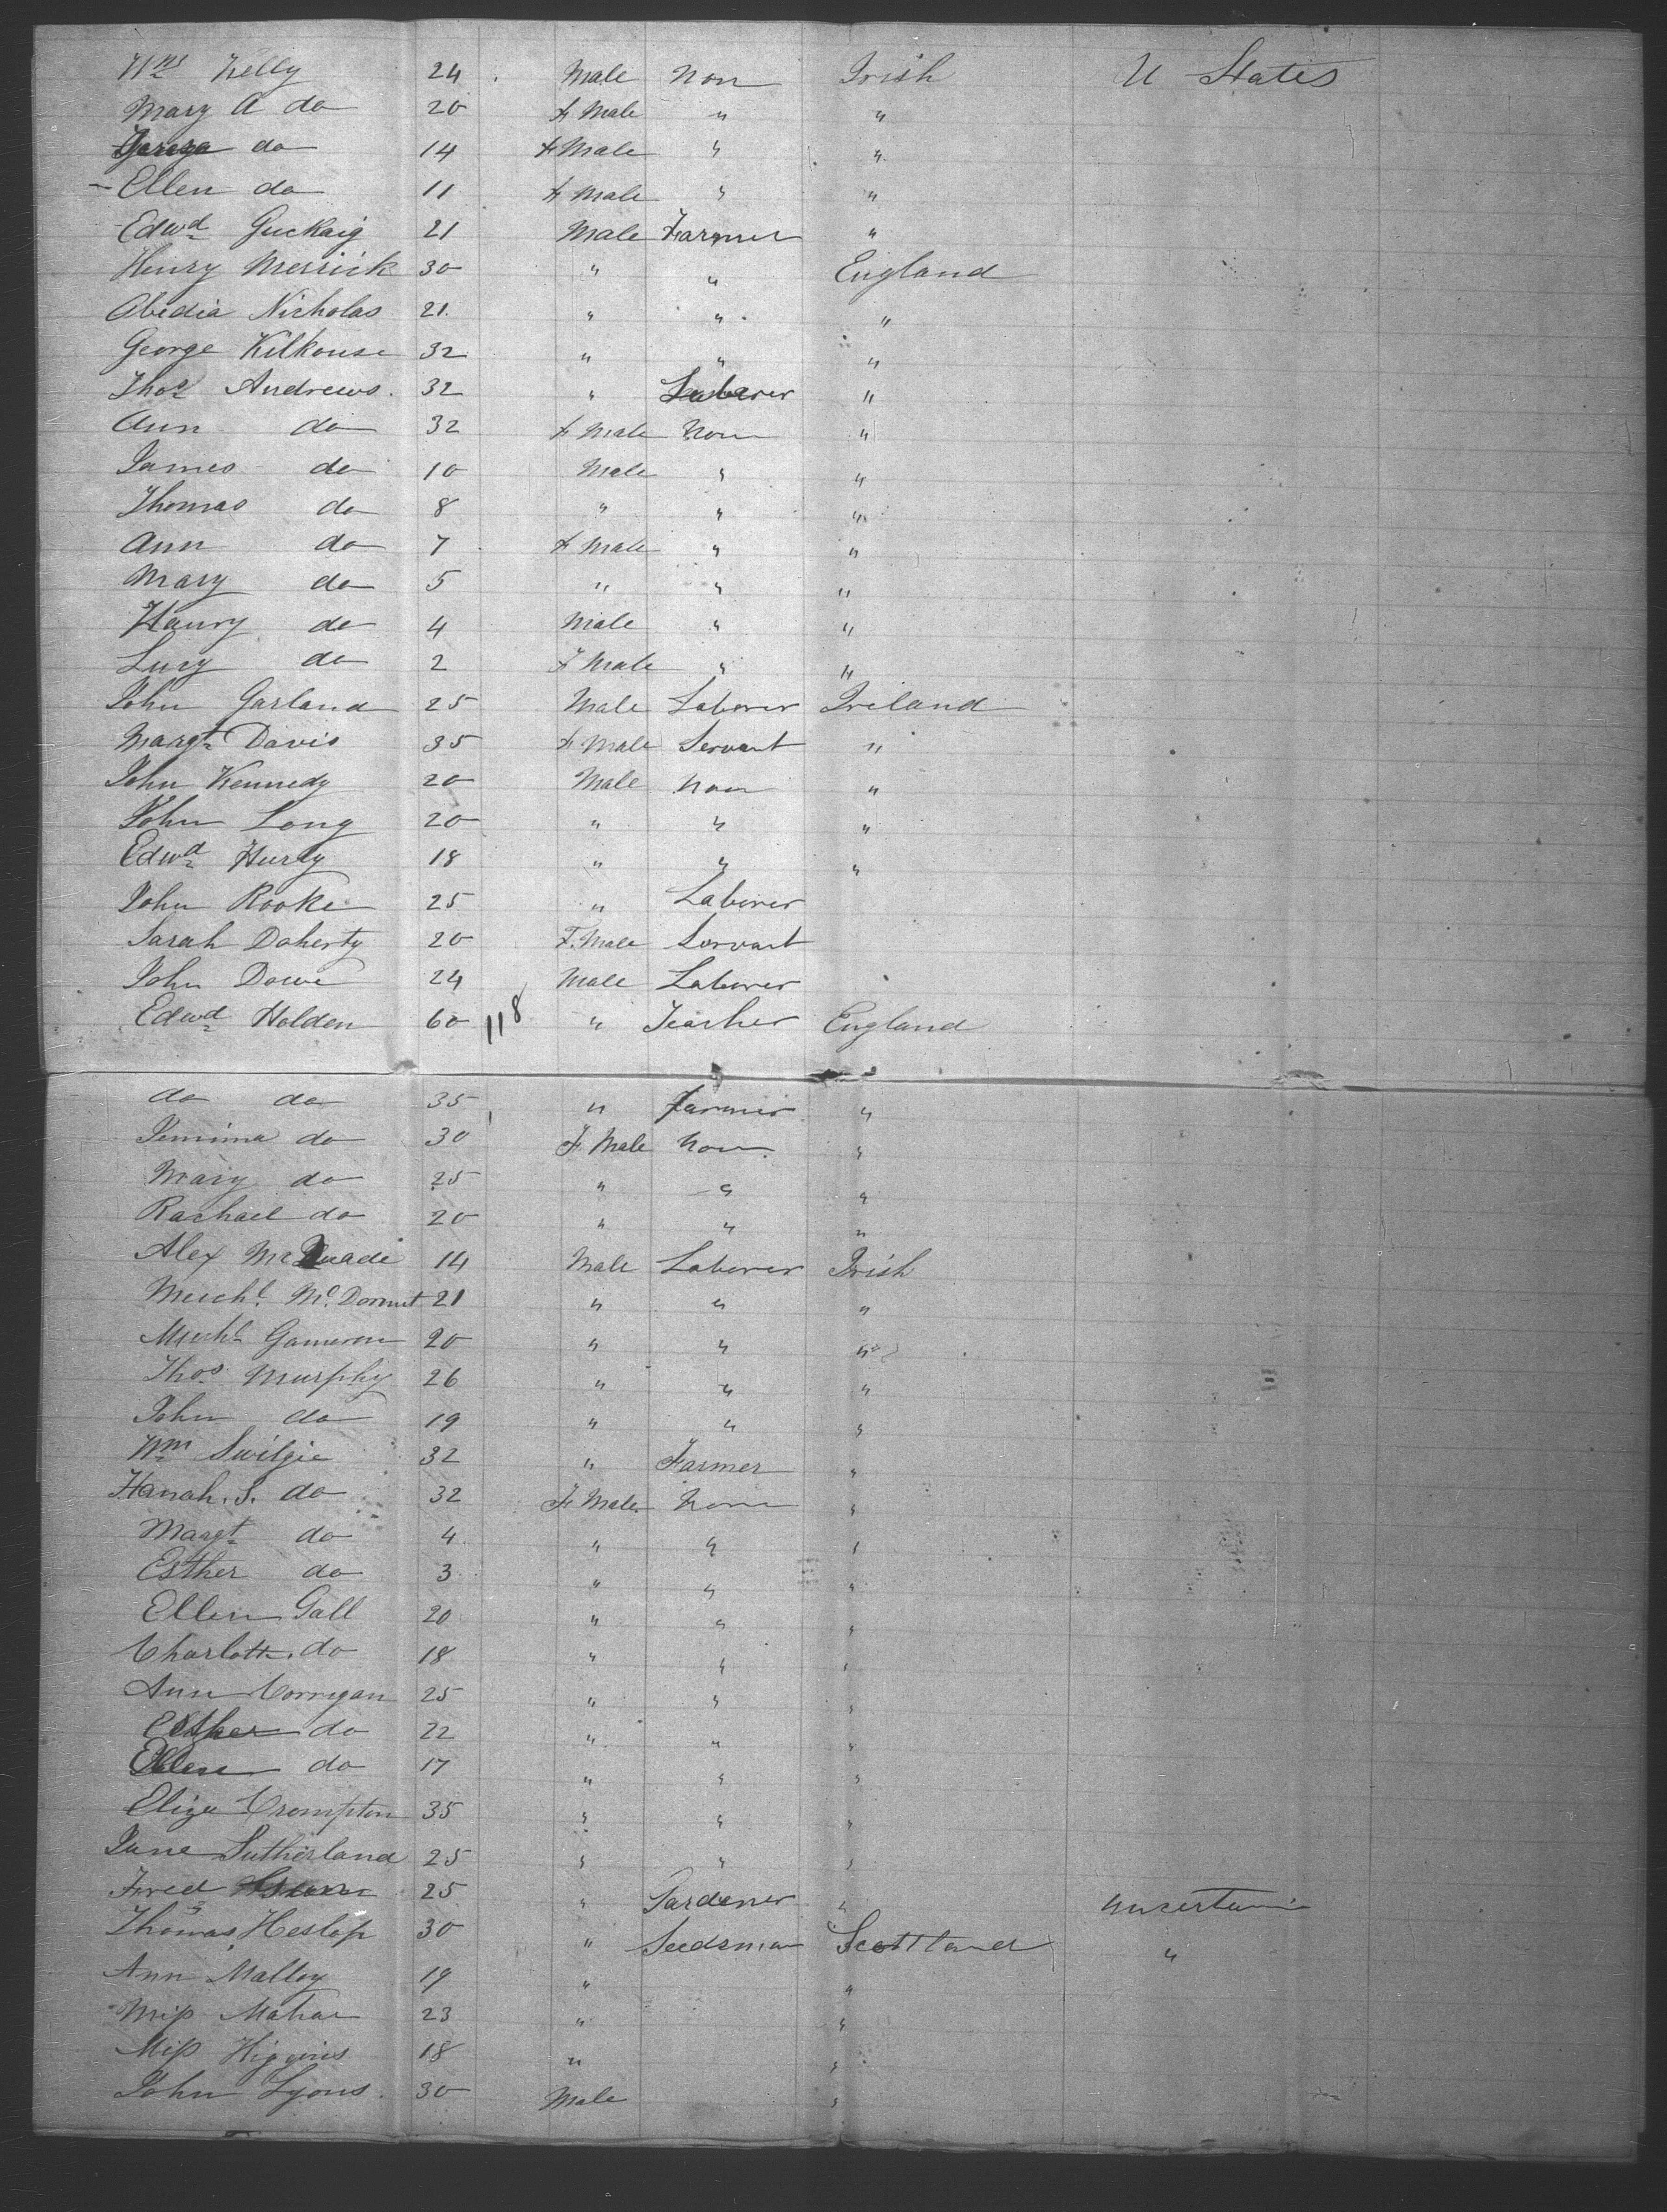 Wm Kelly 24 Male Non Irish U States
Mary A do 20 F Male " "
do 14 F Male " "
Ellen do 11 F Male " "
Edwd Guckaig 21 Male Farmer "
Henry Merrick 30 " " England
Obedia Nicholas 21 " " "
George Kilhouse 32 " " "
Thos Andrews 32 " Laborer "
Ann do 32 F Male Non "
James do 10 Male " "
Thomas do 8 " " "
Ann do 7 F Male " "
Mary do 5 " " "
Haury do 4 Male " "
Lucy do 2 F Male " "
John Garland 25 Male Laborer Ireland
Margt Davis 35 F Male Servant "
John Kennedy 20 Male Non "
John Long 20 " " "
Edwd Hurly 18 " " "
John Rooke 25 " Laborer
Sarah Doherty 20 F. Male Servant
John Dowe 24 Male Laborer
Edwd Holden 60 118 " Teacher England
do do 35 " Farmer "
Jemima do 30 F Male Non "
Mary do 25 " " "
Rachael do 20 " " "
Alex McQuade 14 Male Laborer Irish
Meichl McDormit 21 " " "
Michl Gameron 20 " " "
Thos Murphy 26 " " "
John do 19 " " "
Wm Swilgie 32 " Farmer "
Hanah. S. do 32 F Male Non "
Margt do 4 " " "
Esther do 3 " " "
Ellen Gall 20 " " "
Charlotte do 18 " " "
Ann Corrigan 25 " " "
Esther do 22 " " "
Ellen do 17 " " "
Eliza Crompton 35 " " "
Jane Sutherland 25 " " "
Fred 25 " Gardener " Uncertain
Thomas Heslop 30 " Seedsman Scottland "
Ann Malloy 19 " "
Miss Mahar 23 " "
Miss Higgins 18 " "
John Lyons 30 Male "